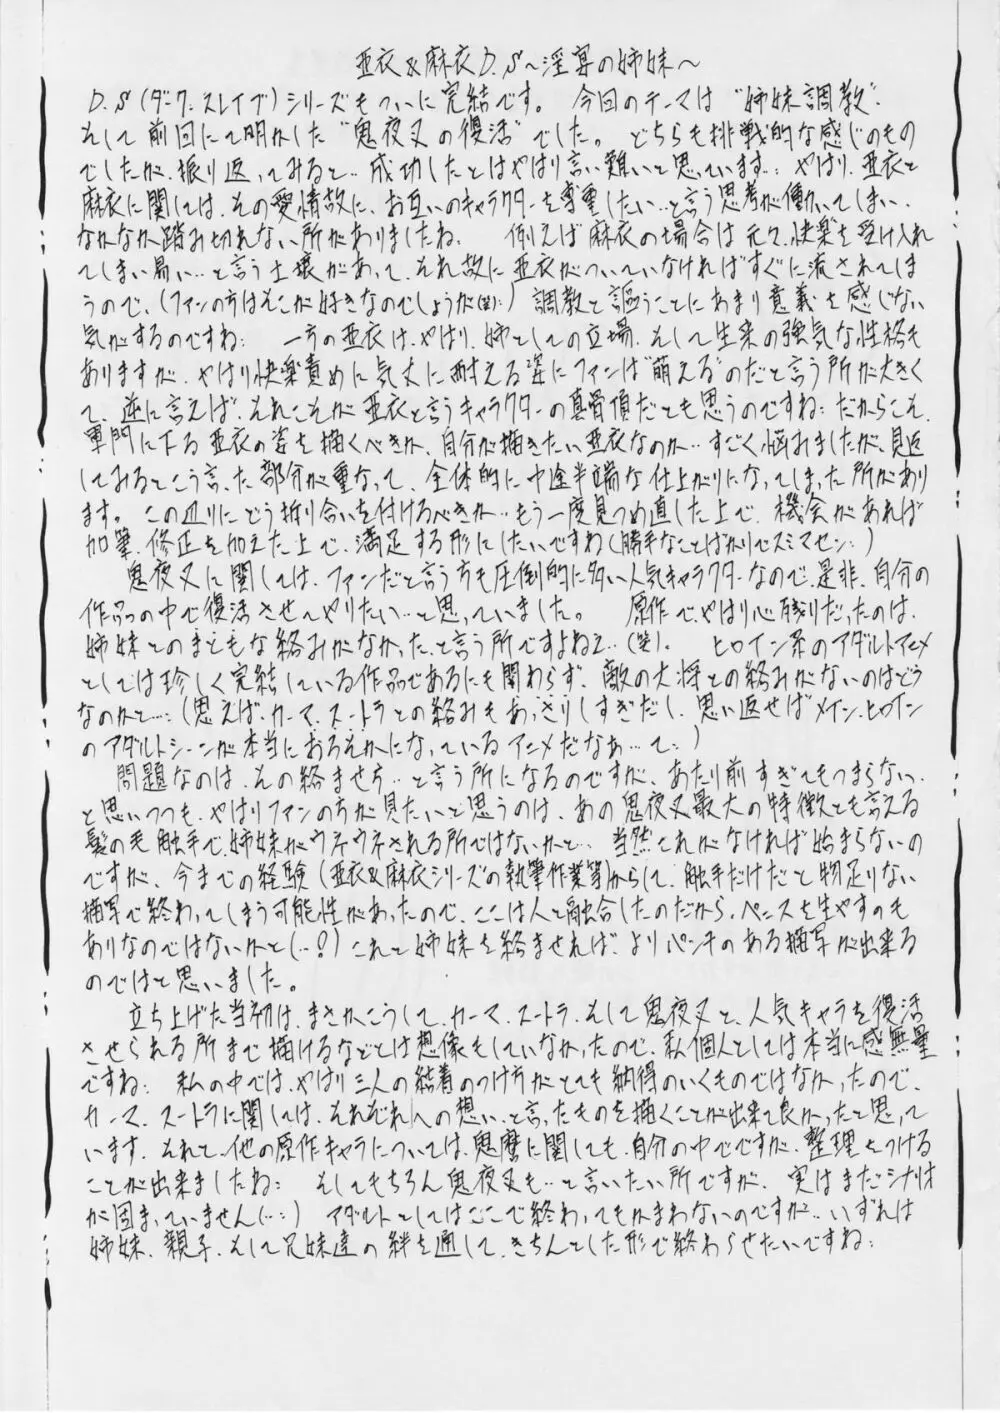 亜衣&麻衣D.S～淫宴の姉妹～
D.S(ダーク.スレイブ)シリーズもついに完結です。 今回のテーマは“姉妹調教”.
そして前回にて明かした“鬼夜叉の復活”でした。 どちらも挑戦的な感じのもの
でしたが、振り返ってみると… 成功したとはやはり言い難いと思っています.: やはり、亜衣と
麻衣に関しては、その愛情故に、お互いのキャラクターを尊重したい…と言う思考が働いてしまい、
なかなか踏み切れない所がありましたね. 例えば麻衣の場合は元々、快楽を受け入れ
てしまい易い…と言う土壌があって、それ故に亜衣がついていなければすぐに流されてしま
うので、(ファンの方はそこが好きなのでしょうが(笑):)調教と謳うことにあまり意義を感じない
気がするのですね: 一方の亜衣は、やはり、姉としての立場、そして生来の強気な性格も
ありますが、やはり快楽責めに気丈に耐える姿にファンは“萌える”のだと言う所が大きく
て、逆に言えば、それこそが亜衣と言うキャラクターの真骨頂だとも思うのですね: だからこそ、
軍門に下る亜衣の姿を描くべきか、自分が描きたい亜衣なのか…すごく悩みましたが、見返
してみるとこう言った部分が重なって、全体的に中途半端な仕上がりになってしまった所があり
ます。 この辺りにどう折り合いを付けるべきか…もう一度見つめ直した上で、機会があれば
加筆、修正を加えた上で、満足する形にしたいですね(勝手なことばかりでスミマセン:)
鬼夜叉に関しては、ファンだと言う方も圧倒的に多い人気キャラクターなので、是非、自分の
作品の中で復活させてやりたい…と思っていました。 原作で、やはり心残りだったのは、
姉妹とのまともな絡みがなかった、と言う所ですよねえ…(笑)。 ヒロイン系のアダルトアニメ
としては珍しく完結している作品であるにも関わらず、敵の大将との絡みがないのはどう
なのかと…:(思えば、カーマ、スートラとの絡みもあっさりしすぎだし、思い返せばメイン、ヒロイン
のアダルトシーンが本当におろそかになっているアニメだなあ…て:)
問題なのは、その絡ませ方…と言う所になるのですが、あたり前すぎてもつまらない、
と思いつつも、やはりファンの方が見たいと思うのは、あの鬼夜叉最大の特徴とも言える
髪の毛触手で、姉妹がウネウネされる所ではないかと… 当然これがなければ始まらないの
ですが、今までの経験(亜衣&麻衣シリーズの執筆作業等)からして、触手だけだと物足りない
描写で終わってしまう可能性があったので、ここは人と融合したのだから、ペニスを生やすのも
ありなのではないかと(…?)これと姉妹を絡ませれば、よりパンチのある描写が出来る
のではと思いました。
立ち上げた当初は、まさかこうして、カーマ、スートラ、そして鬼夜叉と、人気キャラを復活
させられる所まで描けるなどとは想像もしていなかったので、私個人としては本当に感無量
ですね: 私の中では、やはり三人の結着のつけ方がとても納得のいくものではなかったので、
カーマ、スートラに関しては、それぞれへの想い、と言ったものを描くことが出来て良かったと思って
います. それと、他の原作キャラについては、鬼麿に関しても、自分の中でですが、整理をつける
ことが出来ましたね: そしてもちろん鬼夜叉も…と言いたい所ですが、実はまだシナリオ
が固まっていません(…:) アダルトとしてはここで終わってもかまわないのですが… いずれは
姉妹、親子、そして兄妹達の絆を通して、きちんとした形で終わらせたいですね: